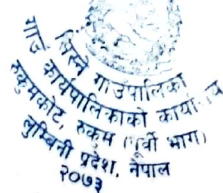 सिस्ने गाउँपालिका
गाउँ कार्यपालिकाको
रुकुमकोट, रुकुम (पूर्वी भाग)
लुम्बिनी प्रदेश, नेपाल
२०७३